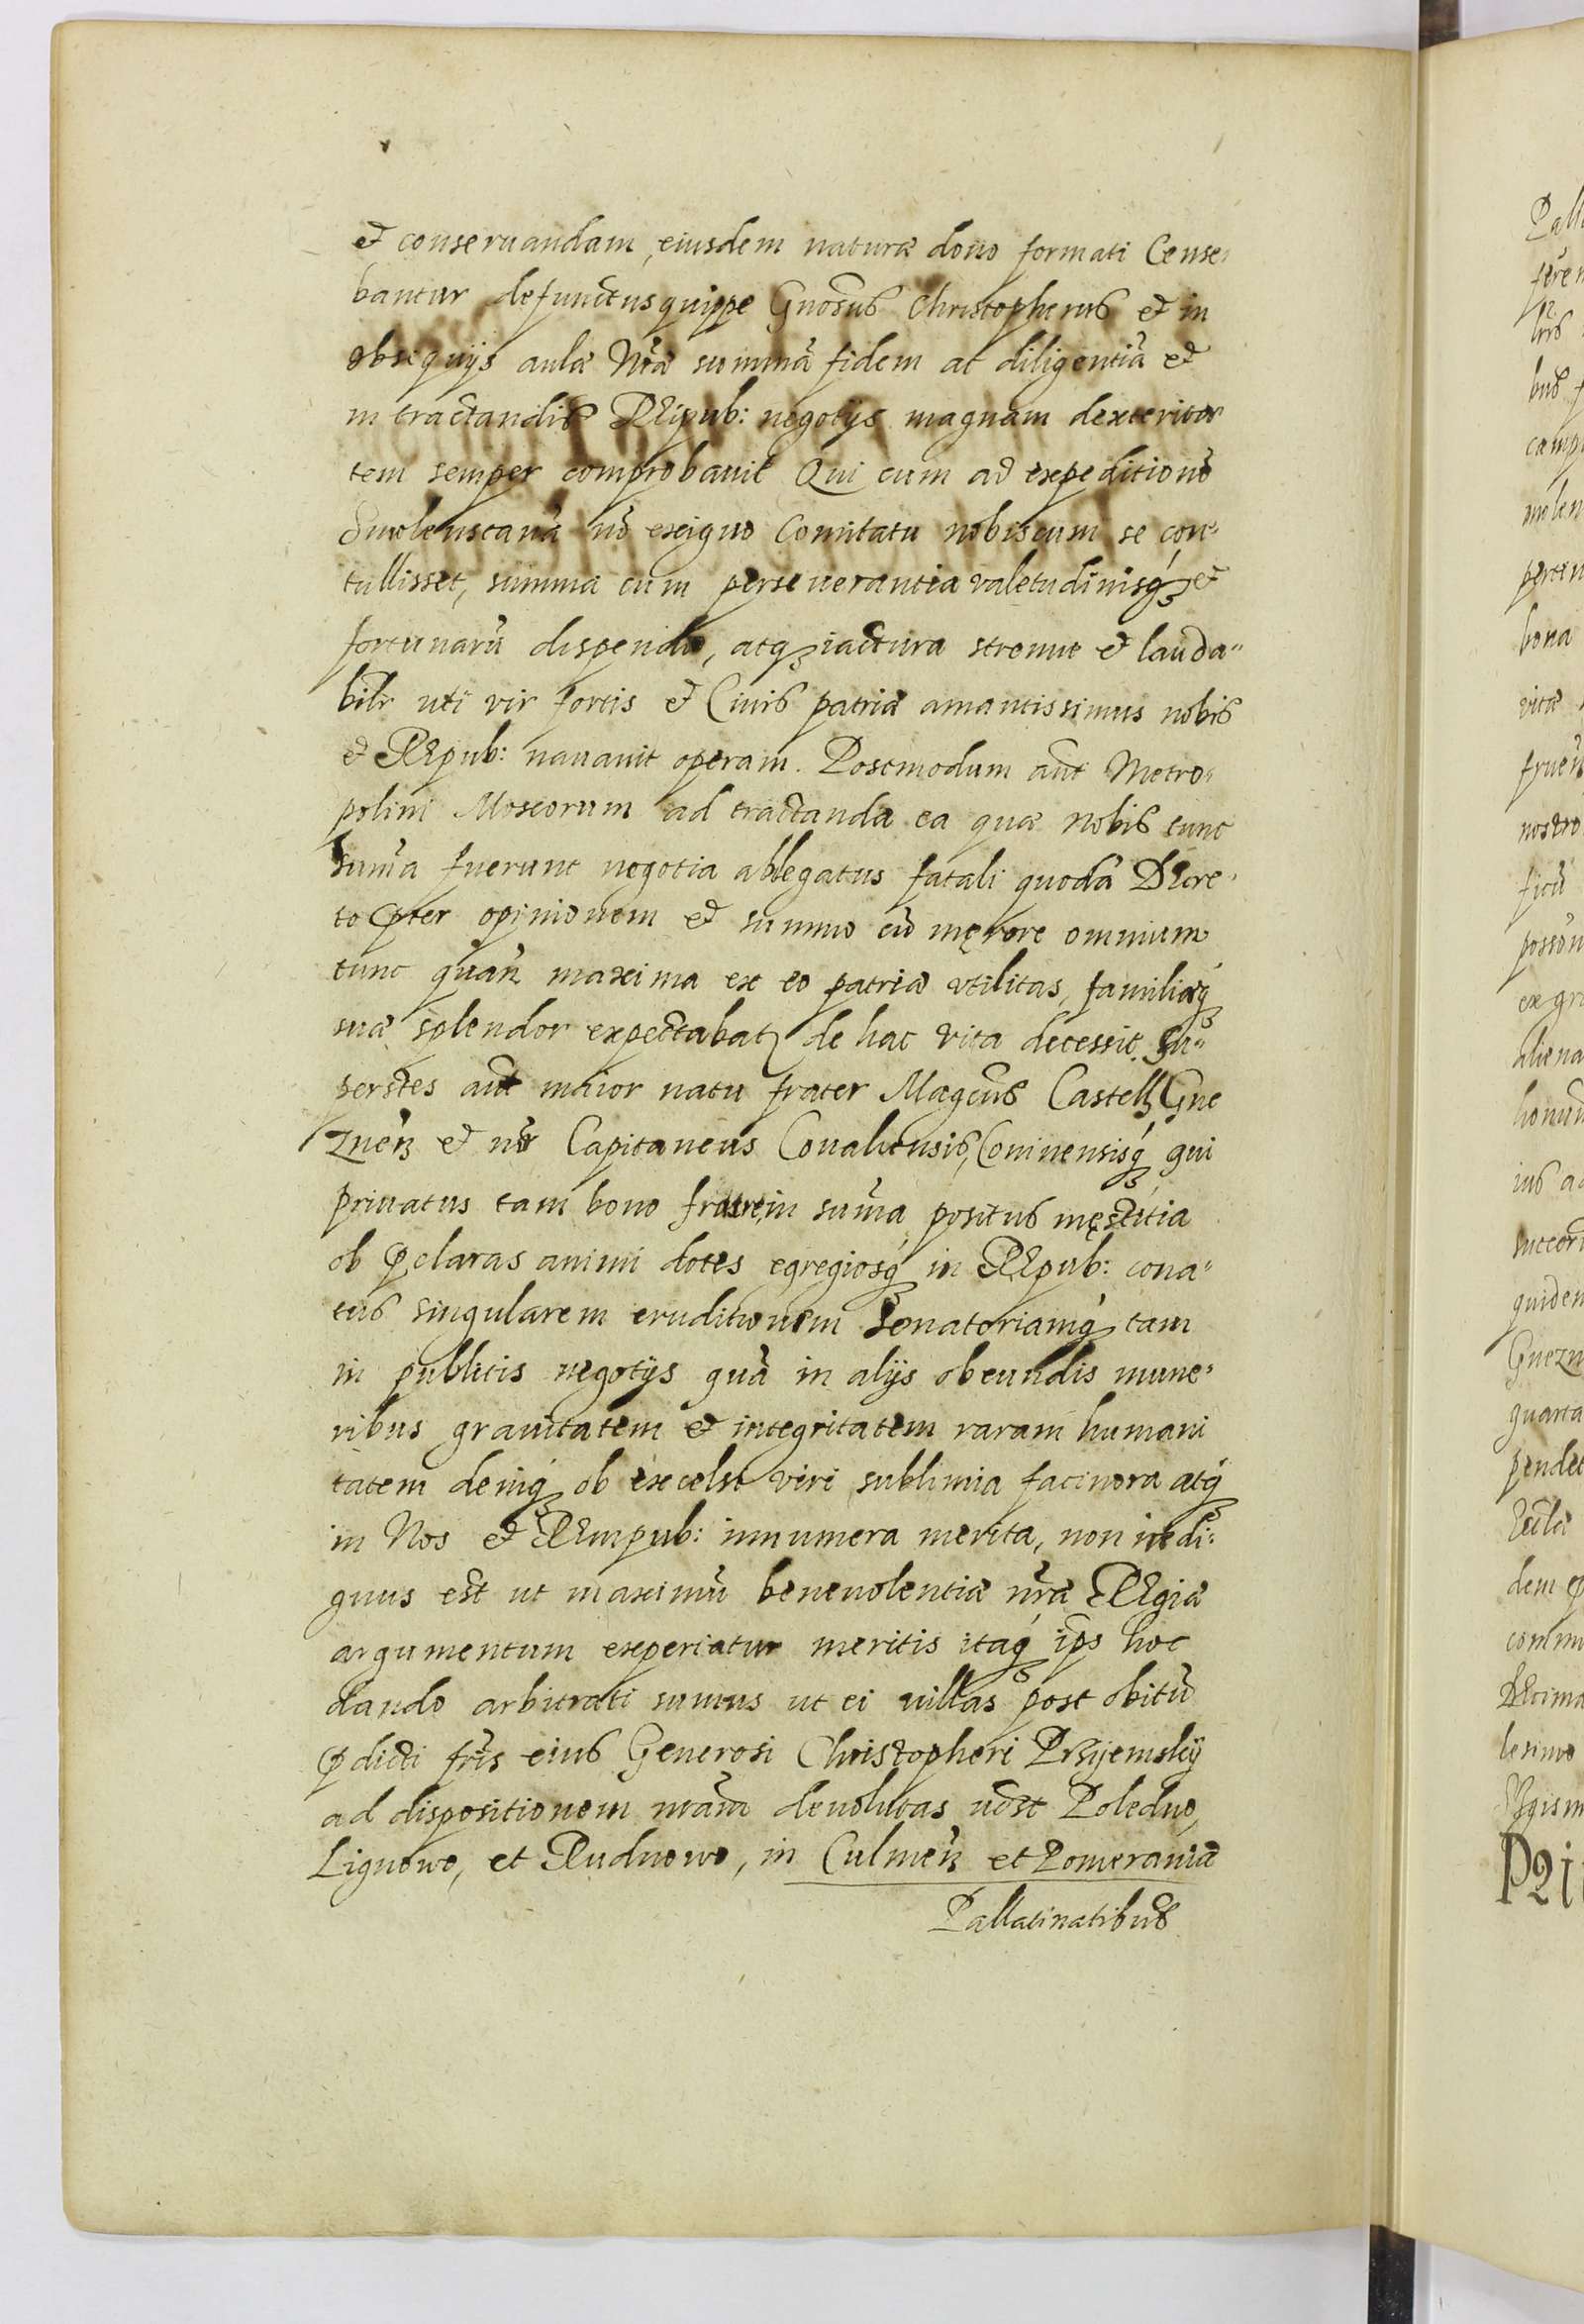 et conseruandam, eiusdem naturæ dono formati Cense-
bantur defunctus quippe Gnosus Christopherus et in
obsequijs aulæ Nræ summã fidem ac diligentiã et
in tractandis Reipub: negotijs magnam dexterita
tem semper comprobauit Qui cum ad expeditionẽ
Smolenscanã nõ exiguo Comitatu nobiscum se con-
tullisset, summa cum perseuerantia valetudinisq́ȝ et
fortunarũ dispendio, atqȝ iactura strenue et lauda-
bilr uti vir fortis et Ciuis patriæ amantissimus nobis
et Reipub: nauauit operam. Postmodum aũt Metro-
polim Moscorum ad tractanda ea quæ nobis tunc
sum̃a fuerunt negotia ablegatus fatali quodã Decre-
to ꝓter opinionem et summo cũ męrore omnium
tunc quañ maxima ex eo patriæ vtilitas, familięq́ȝ
suæ splendor expectabatȝ de hac vita decessit. Su-
perstes aũt maior natu frater Magcus Castellȝ Gne
znẽn et nr̃ Capitaneus Coualiensis, Coninensisq́ȝ qui
priuatus tam bono fratre, in sum̃a positus męstitia
ob ꝓclaras animi dotes egregiosq́ȝ in Repub: cona-
tus singularem eruditionem Senatoriamq́ȝ tam
in publicis negotijs quã in alijs obeundis mune-
ribus grauitatem et integritatem raram humani
tatem deniq́ȝ ob excelsi viri sublimia facinora atq́ȝ
in Nos et Rempub: innumera merita, non indi-
gnus est ut maximũ beneuolentiæ nr̃æ Regiæ
argumentum experiatur meritis itaq́ȝ ips̃ hoc
dando arbitrati sumus ut ei villas post obitũ
ꝓdicti fris eius Generosi Christopheri Przyiemskÿ
ad dispositionem nr̃am deuolutas uc̃st Poledno,
Lignowo, et Rudnowo, in Culmẽn et Pomeraniæ
Pallatinatibus